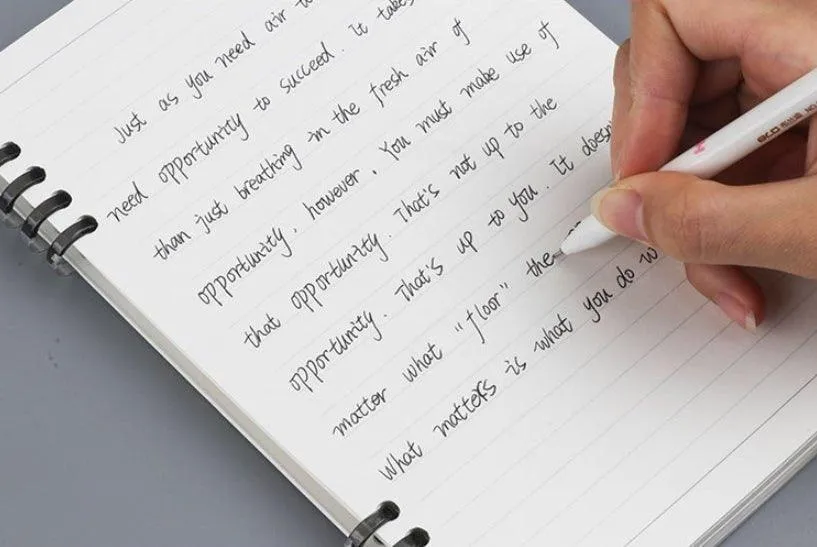 Just as you need air to
need opportunity to succeed. It takes
than just breathing in the fresh air of
opportunity, however. You must make use of
that opportunity. That's not up to the
opportunity. That's up to you. It doesn
matter what "floor" the
What matters is what you do w